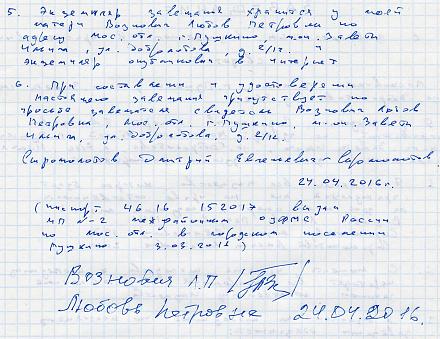 5. Экземпляр завещания хранится у моей
матери Вознобич Любовь Петровны по
адресу Мос. отл. г. Пушкино, м-он. Заветы
Ильича, ул. Добролюбова, д. 2/12. и
экземпляр опубликован в интернет
6. При составлении и удостоверении
настоящего завещания присутствует по
просьбе завещателя свидетель Вознобич Любовь
Петровна, Мос. отл. г. Пушкино, м-он. Заветы
Ильича, ул. Добролюбова, д. 2/12.
Сыромолотов Дмитрий Евгеньевич Сыромолотов
24.04.2016г.
(паспорт 46 16 152017 выдан
МП №-2 межрайонный ОУФМС России
по Мос. отл. в городском поселении
Пушкино 3.03.2011)
Вознобич Л.П
Любовь Петровна 24.04.2016.